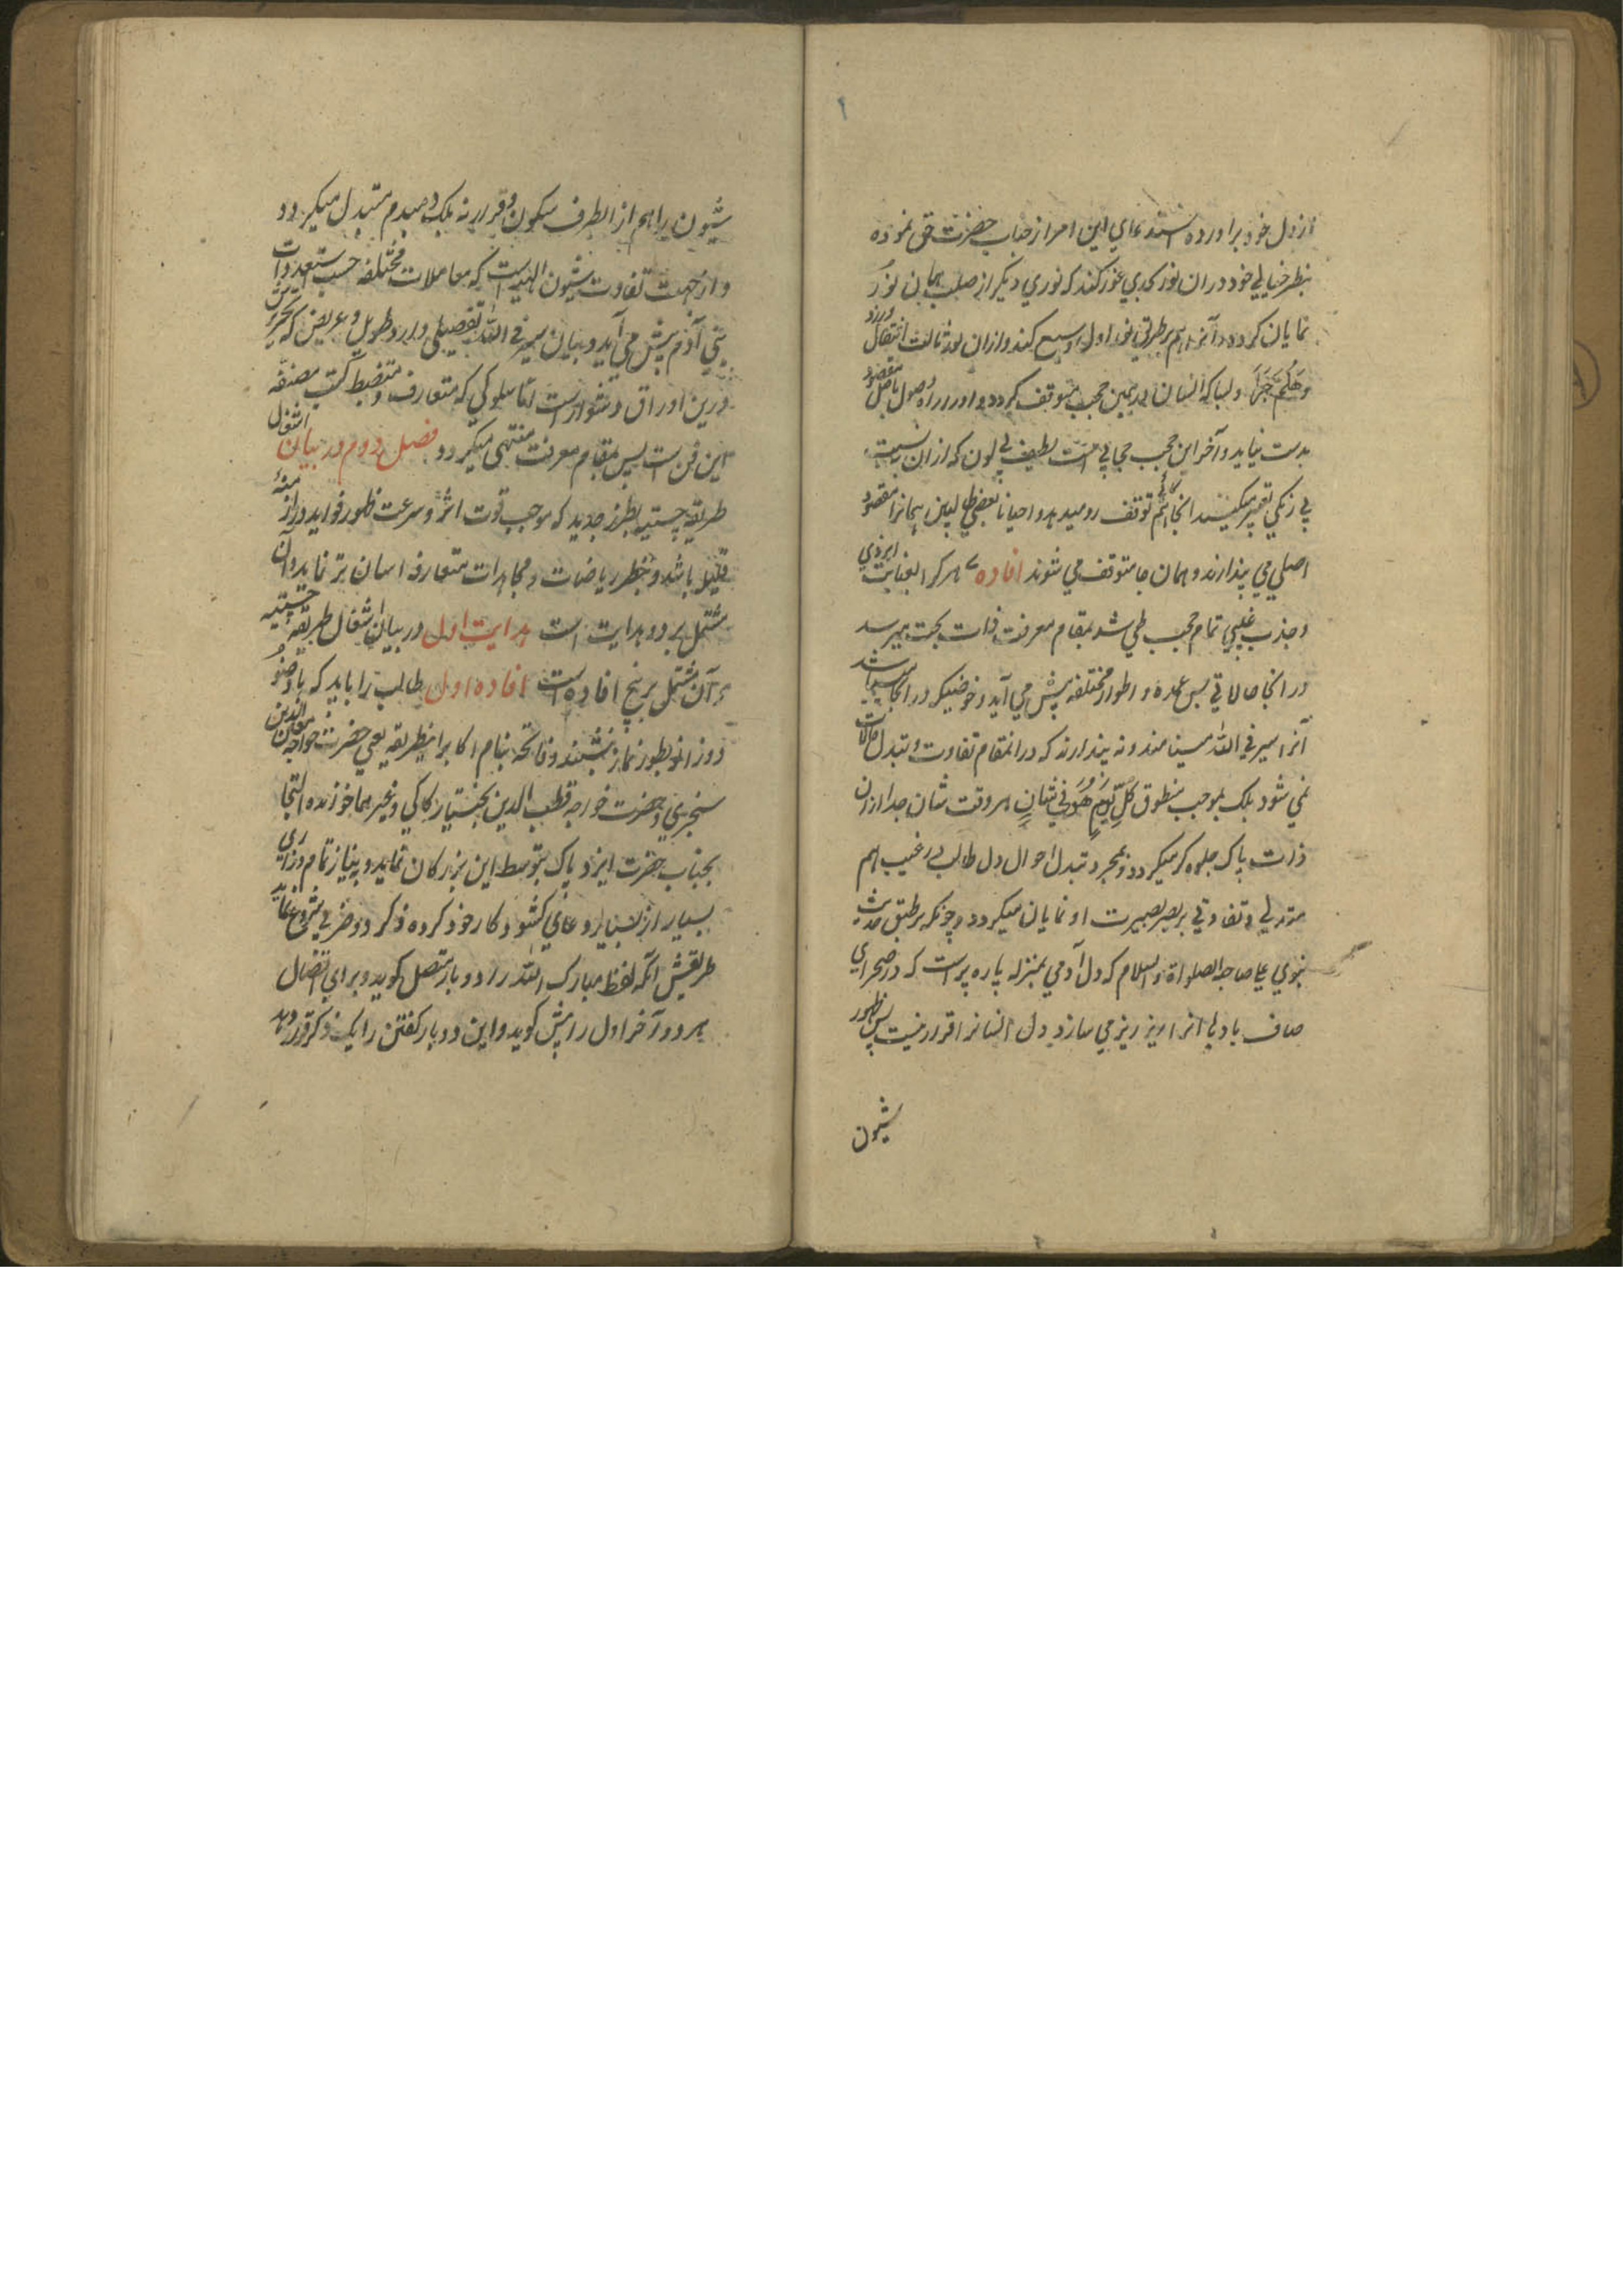 از دل خود برآورده استدعای این امر از جناب حضرت حق نموده
بنظر خیالی خود در ان نور کبری غور کند که نوری دیکر از صلب همان نور
نمایان کردد و آنرا هم بطریق نور اول وسیع کند و ازان نور ثالث انتقال ورزد
وَهَلُمَّ جَرّاً و لسا که انسان در همین حجب متوقف کردد و او را راه وصول باصل مقصود
بدست نیاید و آخر این حجب حجابی است لطیف بی لون که ازان نسبت
بی رنکی تعبیر میکنند انجا هم توقف رو میدهد و احیانا بعضی طالبین همانرا مقصود
اصلی می پندارند و همان جا متوقف می شوند افاده هر کرا بعنایت ایزدی
و جذب غیبی تمام حجب طی شد بمقام معرفت ذات بحت میرسد
در انجا حالاتی بس عمده و اطوار مختلفه پیش می آید و خوضیکه در انجا میباشد
آنرا سیر فی الله مینامند و نه پندارند که در انمقام تفاوت و تبدل حالات
نمی شود بلکه بموجب منطوق كُلَّ يَوْمٍ هُوَ فِي شَانٍ هر وقت شان جدا ازان
ذات پاک جلوه کر میکردد و بمجرد تبدل احوال دل طالب در غیب هم
تبدلی و تفاوتی بر بصر بصیرت او نمایان میکردد و چونکه بر طبق حدیث
نبوی علی صاحبه الصلواة والسلام که دل آدمی بمنزله پاره پر است که در صحرای
صاف باد بی انرا ریز ریز می سازد دل انسانرا قرار نیست پس ظهور
شیون
شیون را هم از انطرف سکون و قرار نه بلکه دمبدم متبدل میکردد
و از جهت تفاوت شیون الهیه است که معاملات مختلفه حسب استعدادات
بنی آدم پیش می آید و بیان سیر فی الله تفصیلی دارد طویل و عریض که تحریرش
درین اوراق دشوار است لیکن سلوکی که متعارف و منضبط کتب مصنفه
این فن ست پس بمقام معرفت منتهی میکردد فصل دوم در بیان اشغال
طریقه چشتیه بطرز جدید که موجب قوت اثر و سرعت ظهور فواید در ازمنهٔ
قلیله باشد و بنظر ریاضات و مجاهدات متعارفه اسان تر نماید و آن
مشتمل بر دو هدایت است هدایت اول در بیان اشغال طریقه چشتیه
و آن مشتمل بر پنج افاده است افاده اول طالب را باید که با وضو
دو زانو بطور نماز بنشیند و فاتحه بنام اکابر اینطریقه یعنی حضرت خواجه معین الدین
سنجری و حضرت خواجه قطب الدین بختیار کاکی و غیرهما خوانده التجا
بجناب حضرت ایزد پاک بتوسط این بزرکان نماید و بنیاز تمام و زاری
بسیار از بسیار دعای کشود کار خود کرده ذکر دو ضربی شروع نماید
طریقش انکه لفظ مبارک الله را دو بار متصل کوید و برای اتصال
هر دو آخر اول را پیش کوید و این دو بار کفتن را یک ذکر قرار دهد